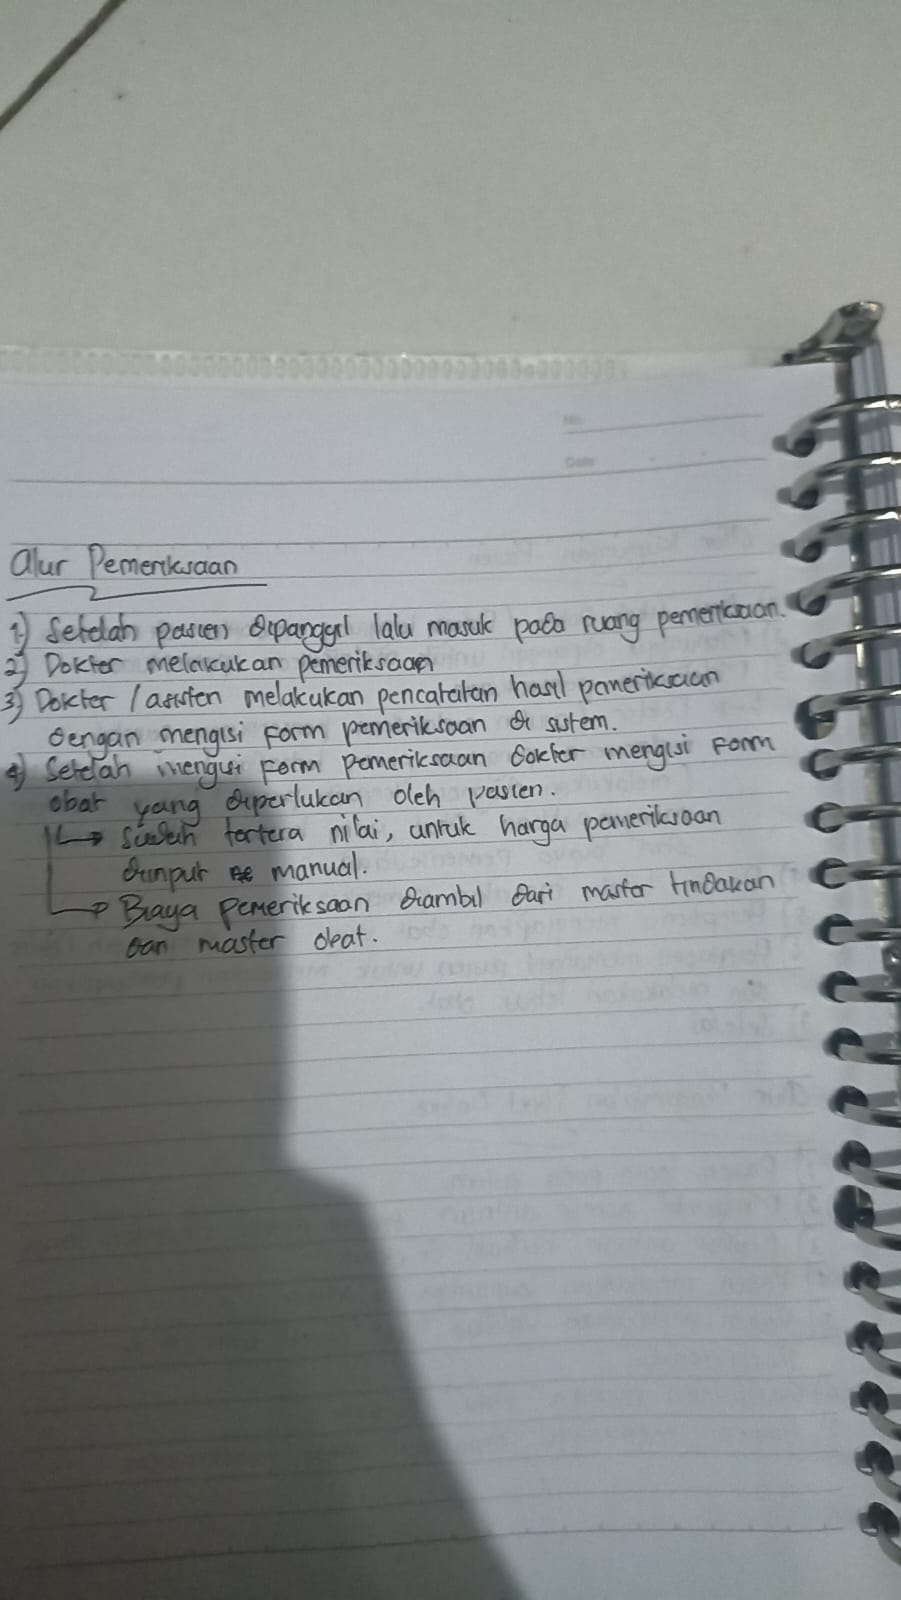 No
Date
Alur Pemeriksaan
1) Setelah pasien dipanggil lalu masuk pada ruang pemeriksaan.
2) Dokter melakukan pemeriksaan
3) Dokter / asisten melakukan pencatatan hasil pemeriksaan
dengan mengisi form pemeriksaan di sistem.
4) Setelah mengisi form pemeriksaan dokter mengisi form
obat yang diperlukan oleh pasien.
↳ Sudah tertera nilai, untuk harga pemeriksaan
diinput manual.
↳ Biaya pemeriksaan diambil dari master tindakan
dan master obat.